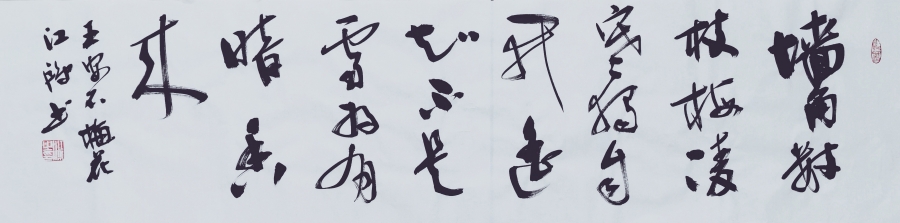 墙角數
枝梅凌
寒獨自
开遥
知不是
雪为有
暗香
来
王安石梅花
江书